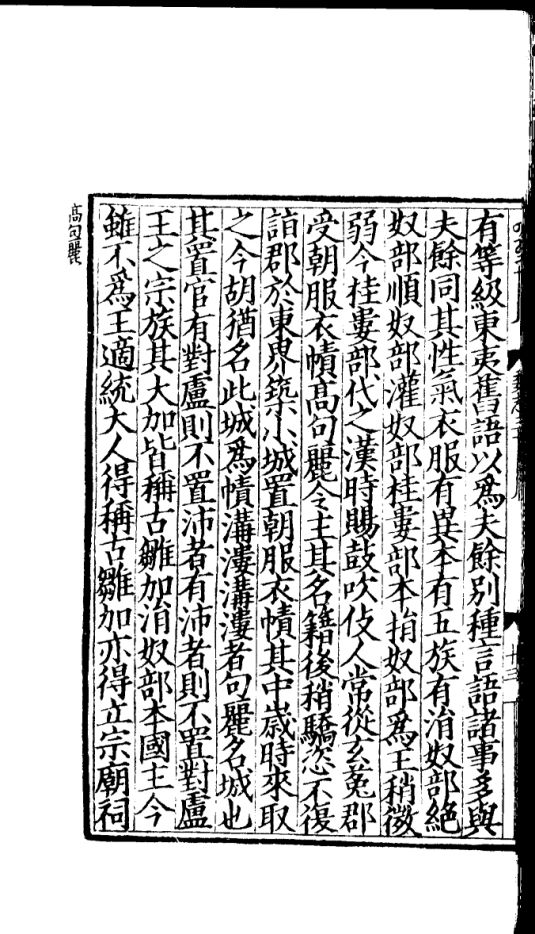 有等級東夷舊語以爲夫餘別種言語諸事多與
夫餘同其性氣衣服有異本有五族有消奴部絶
奴部順奴部灌奴部桂婁部本捐奴部爲王稍微
弱今桂婁部代之漢時賜鼓吹伎人常從玄菟郡
受朝服衣幘高句麗令主其名籍後稍驕恣不復
詣郡於東界築小城置朝服衣幘其中歳時來取
之今胡猶名此城爲幘溝漊溝漊者句麗名城也
其置官有對盧則不置沛者有沛者則不置對盧
王之宗族其大加皆稱古雛加消奴部本國主今
雖不爲王適統大人得稱古雛加亦得立宗廟祠
高句麗